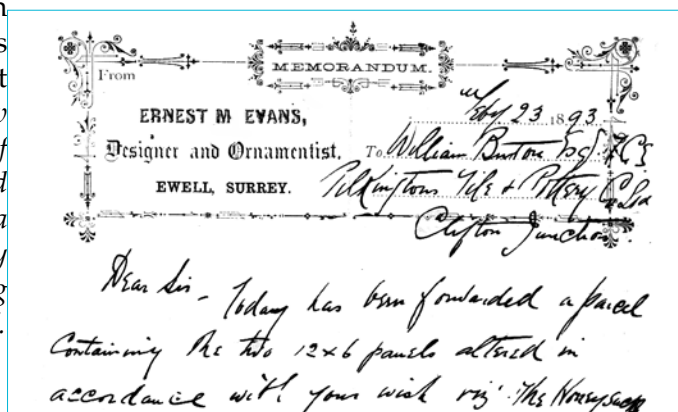 MEMORANDUM.
From
Feby 23 1893
ERNEST M EVANS,
Designer and Ornamentist,
EWELL, SURREY.
To William Burton Esq F.C.S
Pilkingtons Tile & Pottery Co Ltd
Clifton Junction.
Dear Sir - Today has been forwarded a parcel
containing the two 12x6 panels altered in
accordance with your wish viz. The Honeysuck